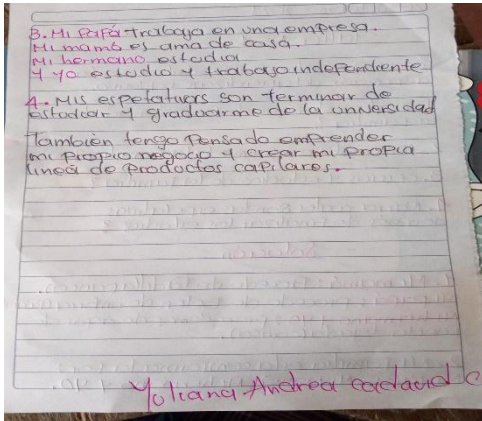 3. Mi papá trabaja en una empresa.
Mi mamá es ama de casa.
Mi hermano estudia
y yo estudio y trabajo independiente
4. Mis espetativas son terminar de
estudiar y graduarme de la universidad
También tengo pensado emprender
mi propio negocio y crear mi propia
linea de productos capilares.
Yuliana Andrea cadavid c